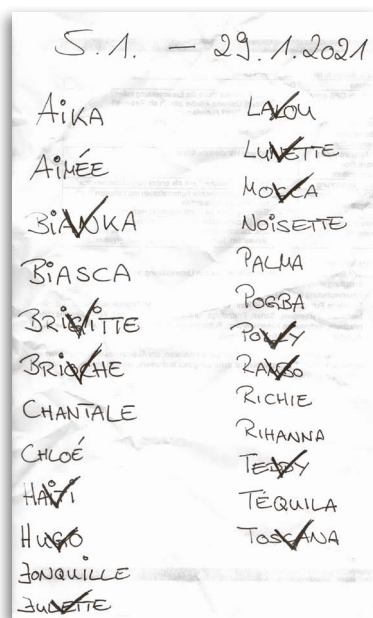 5.1. – 29.1.2021
AiKA
AiMÉE
BiANKA
BiASCA
BRIGITTE
BRIOCHE
CHANTALE
CHLOÉ
HAÏTI
HUGO
JONQUILLE
JULIETTE
LALOU
LUNETTE
MOSCA
NOiSETTE
PALMA
POGBA
POLLY
RAMBO
RICHIE
RIHANNA
TEDDY
TÉQUILA
TOSCANA